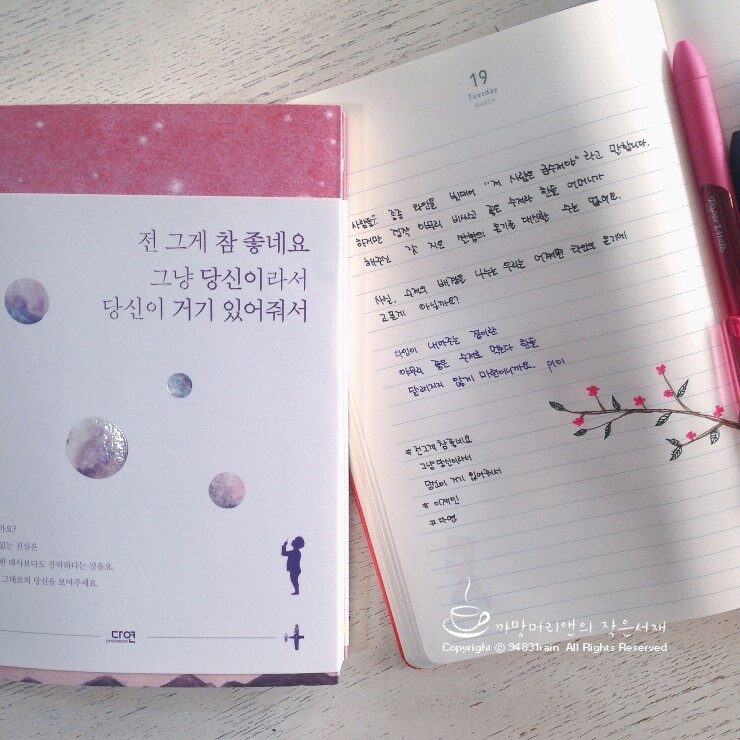 전 그게 참 좋네요
그냥 당신이라서
당신이 거기 있어줘서
있는 진실은
한 대사보다도 강력하다는 것을요.
그대로의 당신을 보여주세요.
다연
19
Tuesday
MARCH
사람들은 종종 타인을 빗대어 "저 사람은 금수저야" 라고 말합니다.
하지만 정작 아무리 비싸고 좋은 수저라 한들 어머니가
해주는 갓 지은 쌀밥의 온기를 대신할 수는 없어요.
사실, 수저의 배경을 나누는 우리는 어쩌면 타인의 온기에
고픈게 아닐까요?
타인이 내어주는 곁이란
아무리 좋은 수저로 먹는다 한들
달래지지 않기 마련이니까요.
#전그게참좋네요
그냥당신이라서
당신이 거기 있어줘서
#다연
까망머리앤의 작은서재
Copyright © 94831rain All Rights Reserved